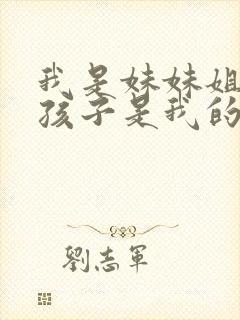 我是妹妹姐
孩子是我的
劉志軍